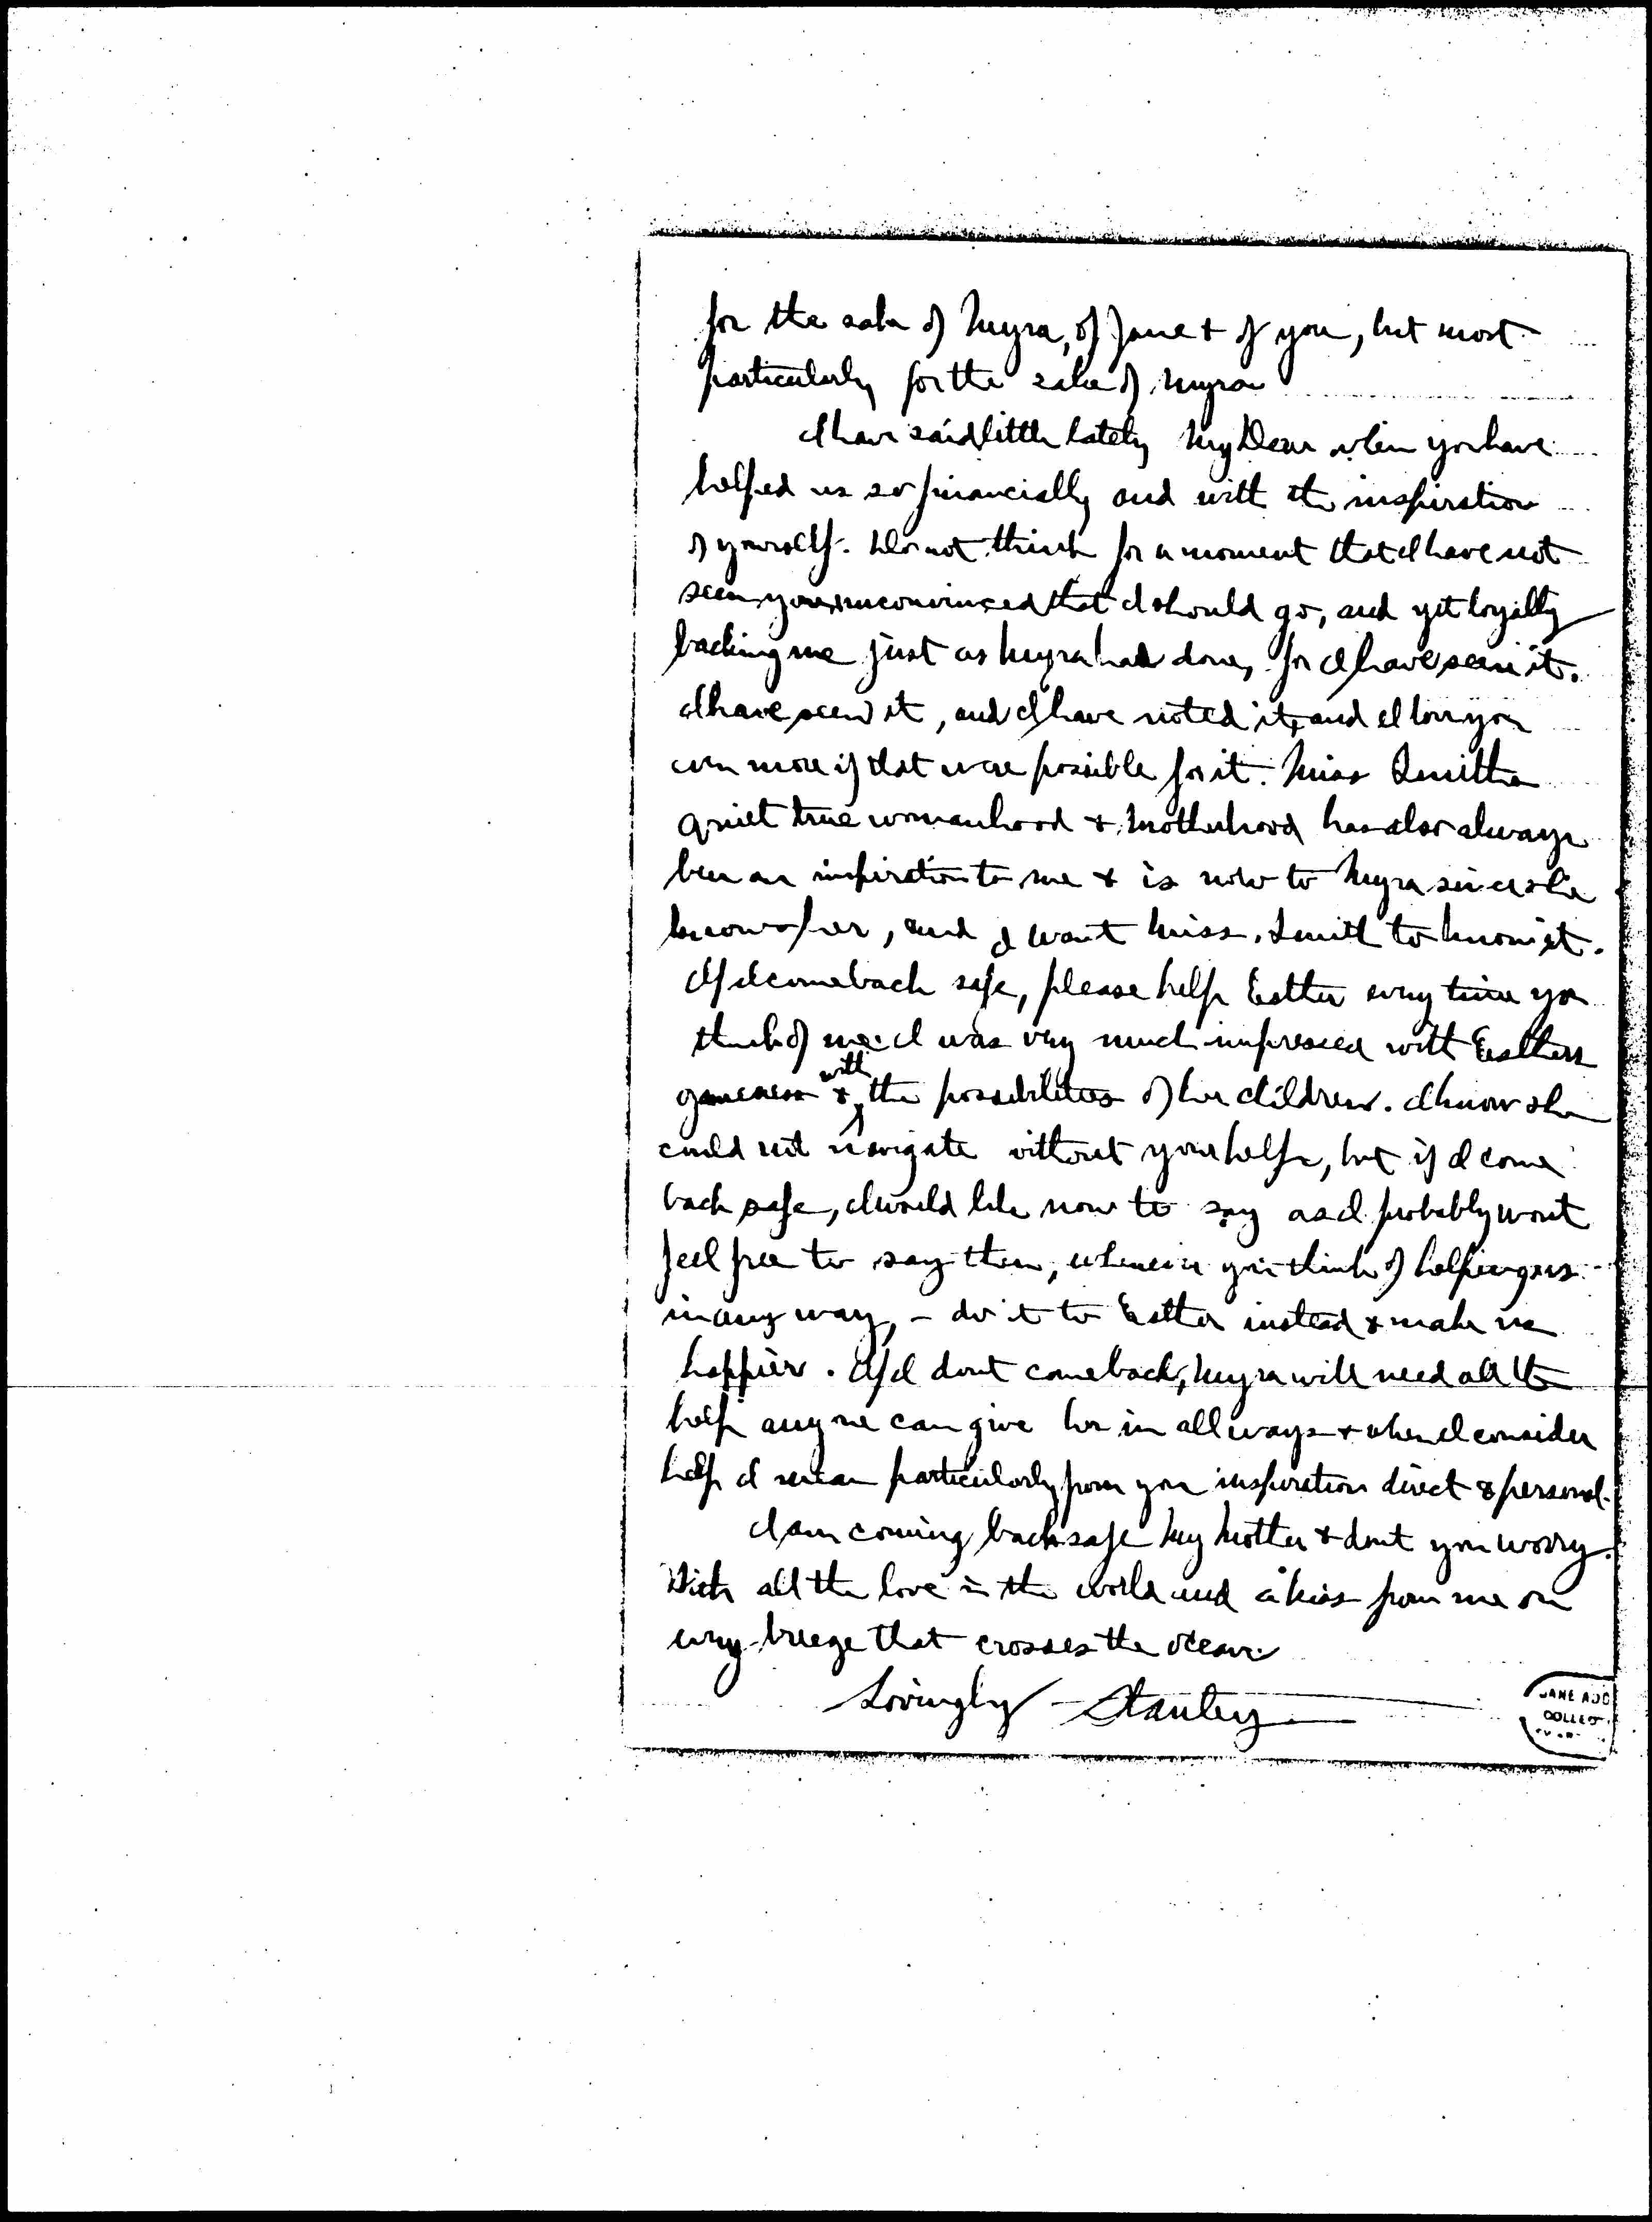 for the sake of Myra, of Jane & of you, but most
particularly for the sake of Myra
I have said little lately My Dear when you have
helped us so financially and with the inspiration
of yourself. Do not think for a moment that I have not
seen you, unconvinced that I should go, and yet loyally
backing me just as Myra had done, for I have seen it.
I have seen it, and I have noted it, and I love you
even more if that were possible for it. Miss Smith's
quiet true womanhood & motherhood has also always
been an inspiration to me & is now to Myra since she
knows her, and I want Miss. Smith to know it.
If I come back safe, please help Esther every time you
think of me. I was very much impressed with Esthers
gameness & with the possibilities of her children. I know she
could not navigate without your help, but if I come
back safe, I would like now to say as I probably wont
feel free to say then, whenever you think of helping us
in any way, - do it to Esther instead & make us
happier. If I dont come back, Myra will need all the
help anyone can give her in all ways & when I consider
help I mean particularly from you inspiration direct & personal.
I am coming back safe My Mother & dont you worry.
With all the love in the world and a kiss from me on
every breeze that crosses the ocean.
Lovingly - Stanley
JANE ADD
COLLECT